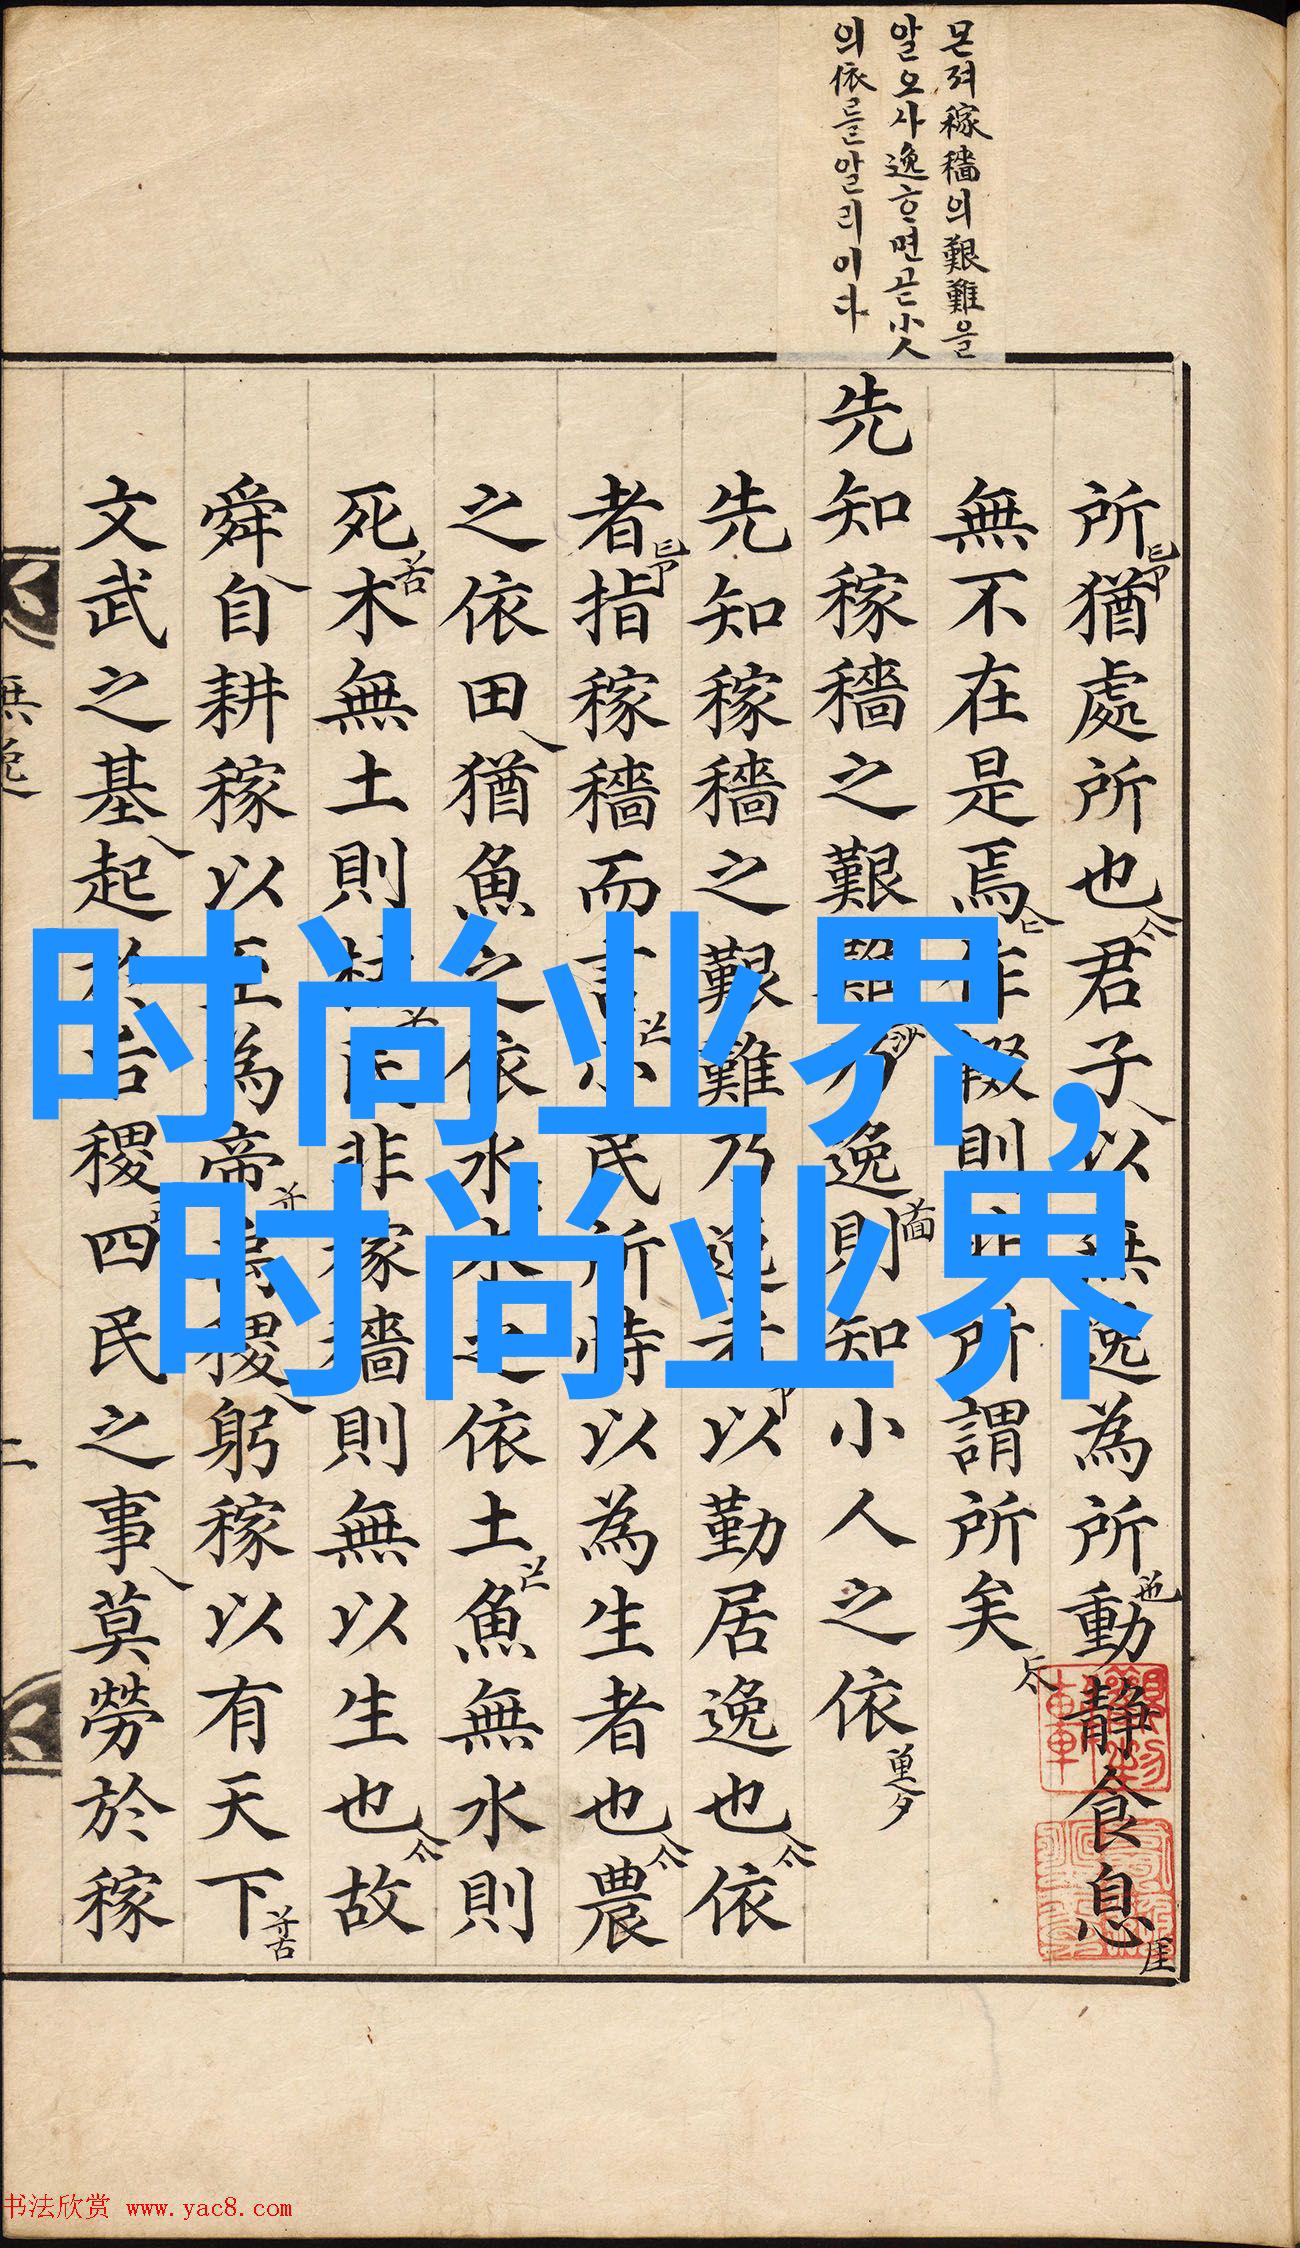 몬져稼穡의艱難을
알오사逸ᄒᆞ면곧小人
의依를알리이다
所猶處所也君子以無逸為所動靜食息
無不在是焉作輟則非所謂所矣
先知稼穡之艱難乃逸則知小人之依
先知稼穡之艱難乃逸者以勤居逸也依
者指稼穡而言小民所恃以為生者也農
之依田猶魚之依水木之依土魚無水則
死木無土則枯民非稼穡則無以生也故
舜自耕稼以至為帝禹稷躬稼以有天下
文武之基起於后稷四民之事莫勞於稼
無逸
二
时尚业界,
时尚业界
书法欣赏 www.yac8.com